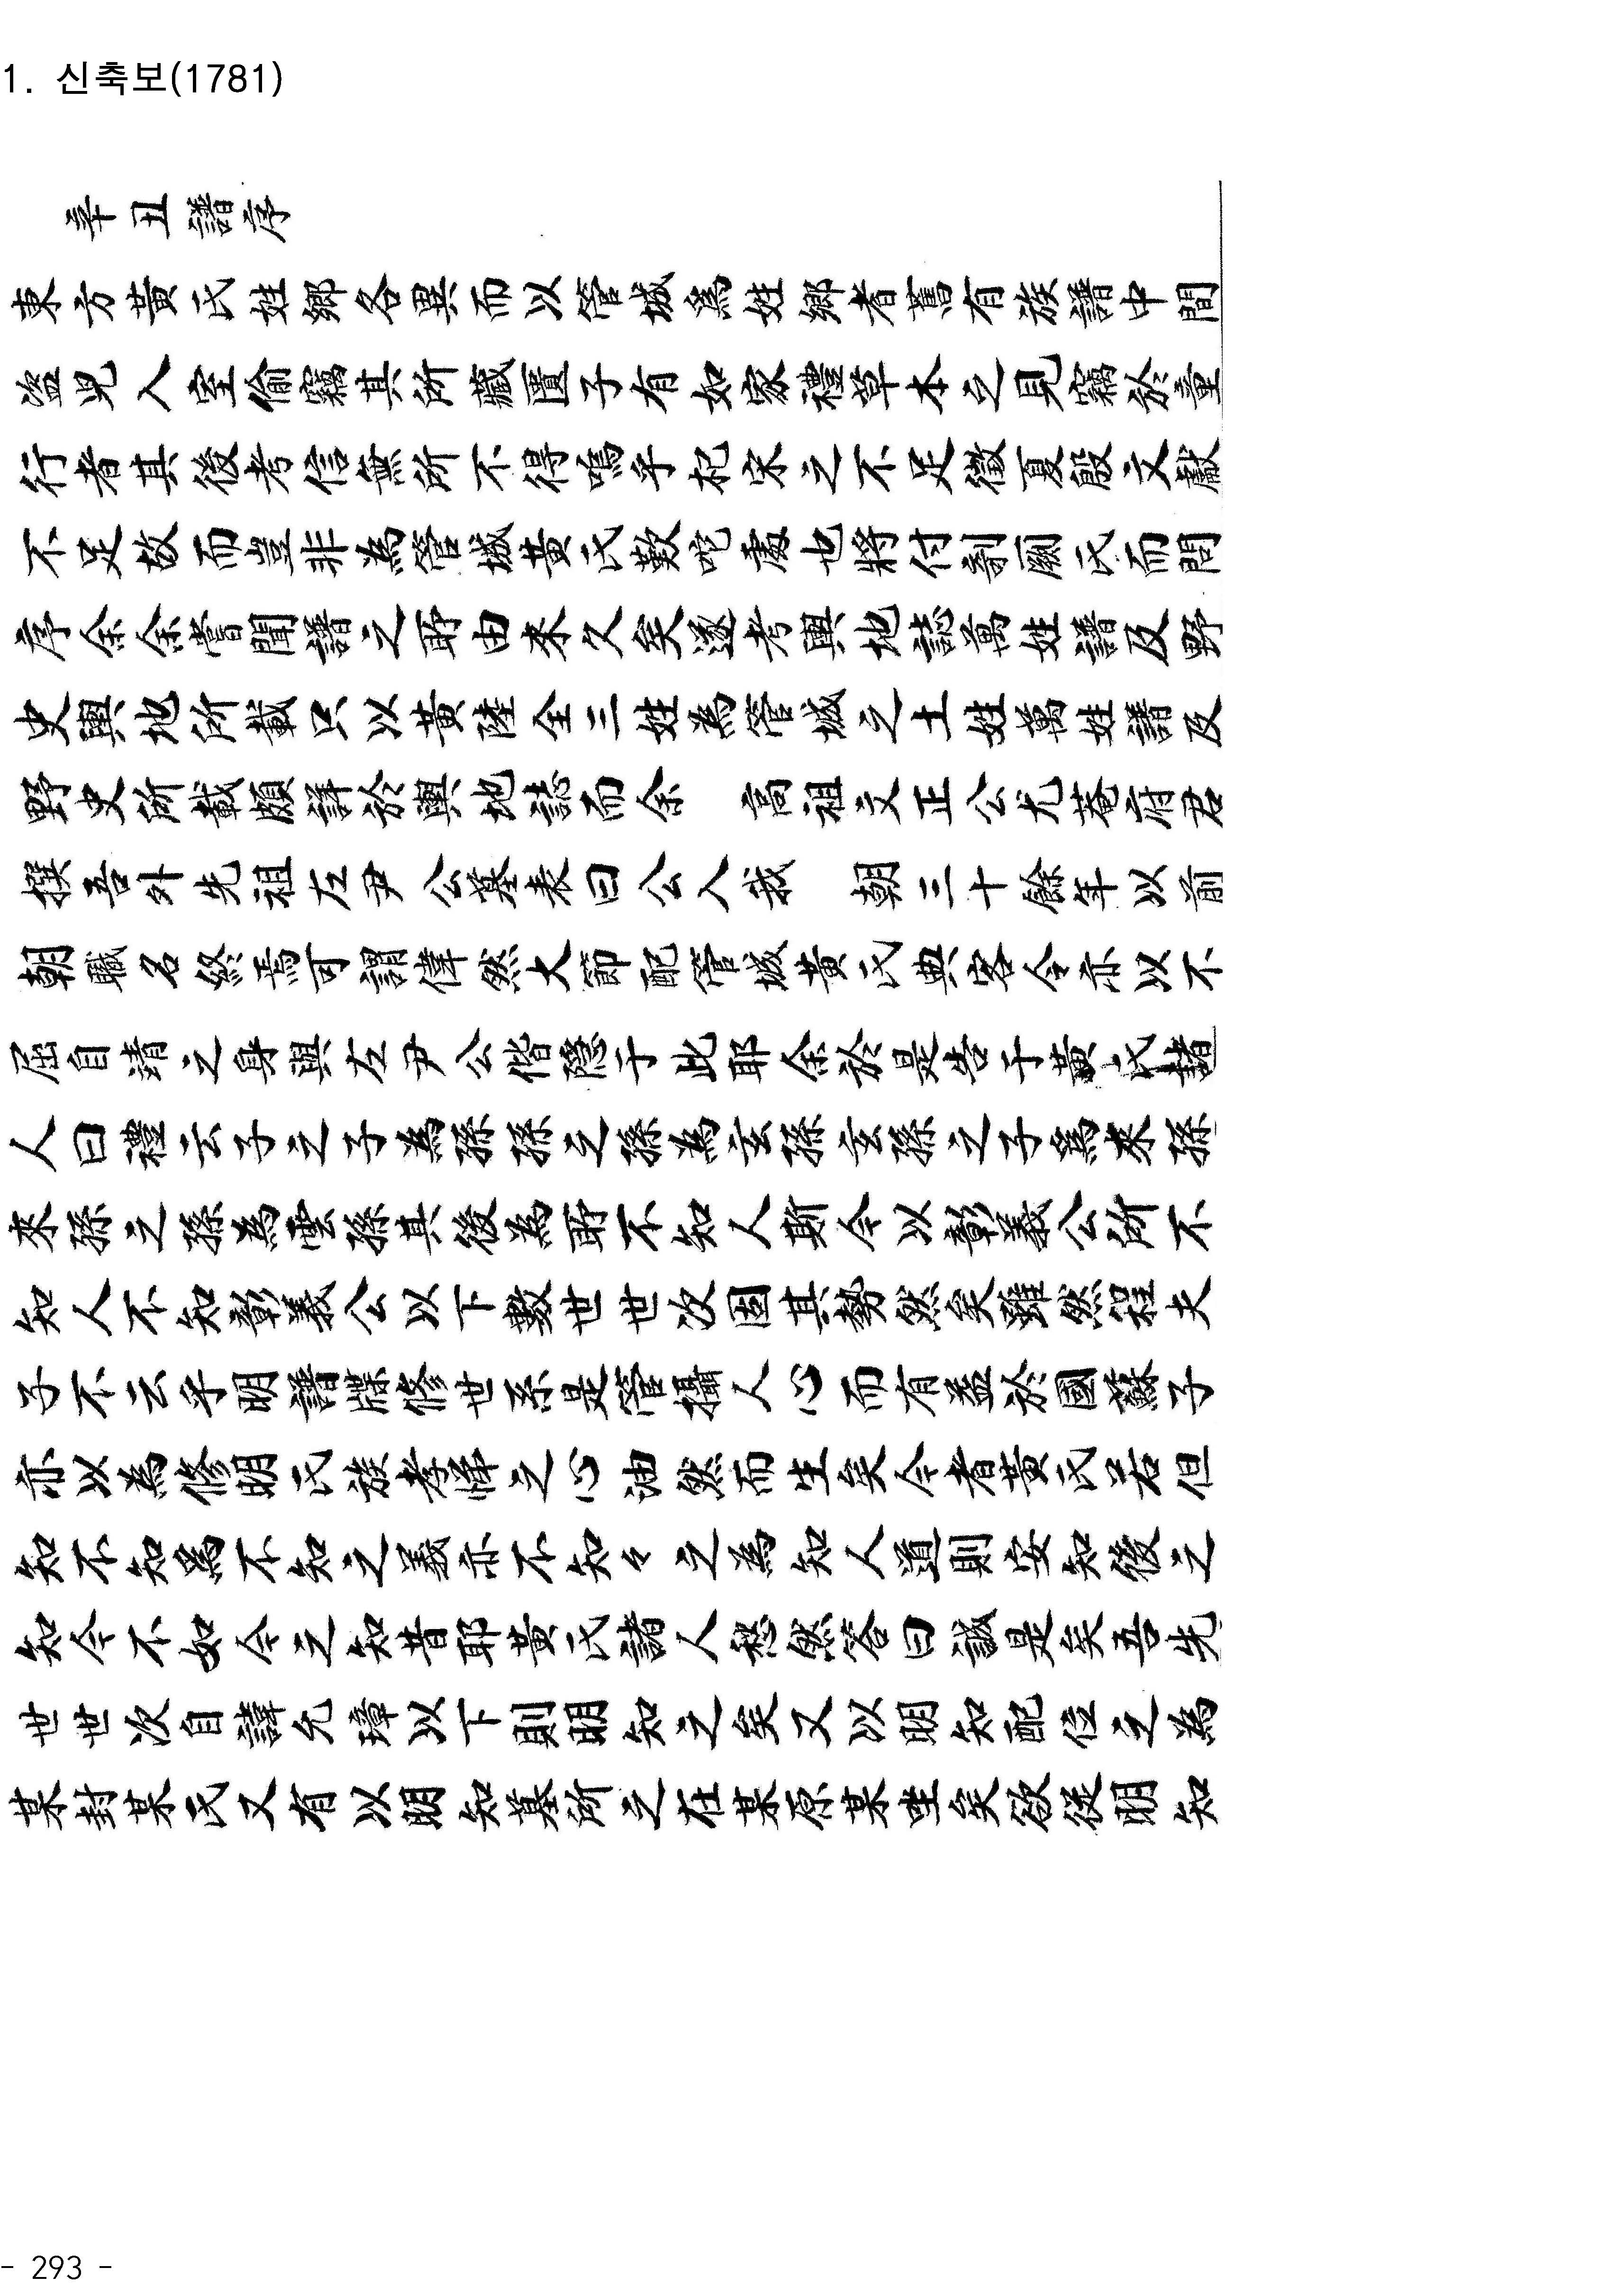 1. 신축보(1781)
辛丑譜序
東方黃氏姓鄕各異而以管城爲姓鄕者舊有族譜中間
盜児入室偷竊其所藏匱子有如家禮草本之見竊於童
行者其後考信無所不得嗚乎杞宋之不足徵夏殷文獻
不足故而豈非為管城黃氏歎咜處也將付剞劂氏而問
序余余嘗聞譜之所由來久矣遂考輿地誌萬姓譜及野
史輿地所載只以黃陸全三姓為管城之土姓萬姓譜及
野史所載頗詳於輿地誌而余 高祖文正公尤菴府君
撰吾外先祖左尹公墓表曰公入我 朝三十餘年以前
朝職名終焉可謂偉然大節配管城黃氏典客令亦以不
屈自靖之身與左尹公偕隱于此耶余於是告于黃氏諸
人曰禮云子之子為孫孫之孫為玄孫玄孫之子爲來孫
來孫之孫為雲孫其後為所不知人斯今以彰義公所不
知人不知彰義公以下數世世次固其勢然矣雖然程夫
子不云乎明譜牒修世系是管攝人心而有益於國蘇子
亦以為修明氏族孝悌之心油然而生矣今者黃氏若但
知不知爲不知之義亦不知々之為知人道則安知後之
知今不如今之知昔耶黃氏諸人愁然答曰誠是矣吾先
世世次自諱允璋以下則明知之矣又以明知配位之為
某封某氏又有以明知墓所之在某原某坐矣欲從明知
- 293 -